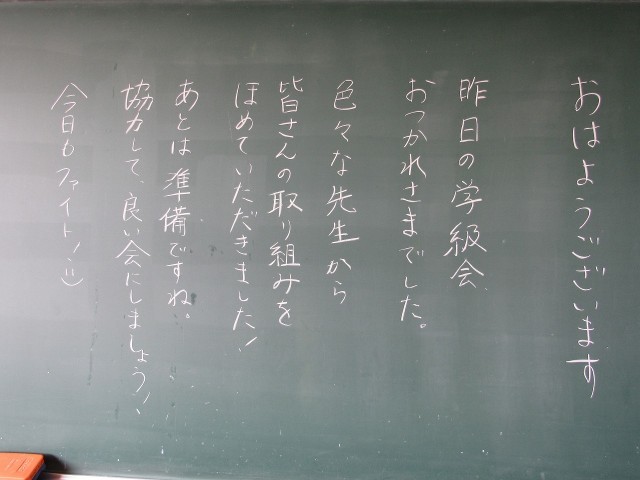 おはようございます
昨日の学級会
おつかれさまでした。
色々な先生から
皆さんの取り組みを
ほめていただきました!
あとは準備ですね。
協力して、良い会にしましょう!
今日もファイト!:)